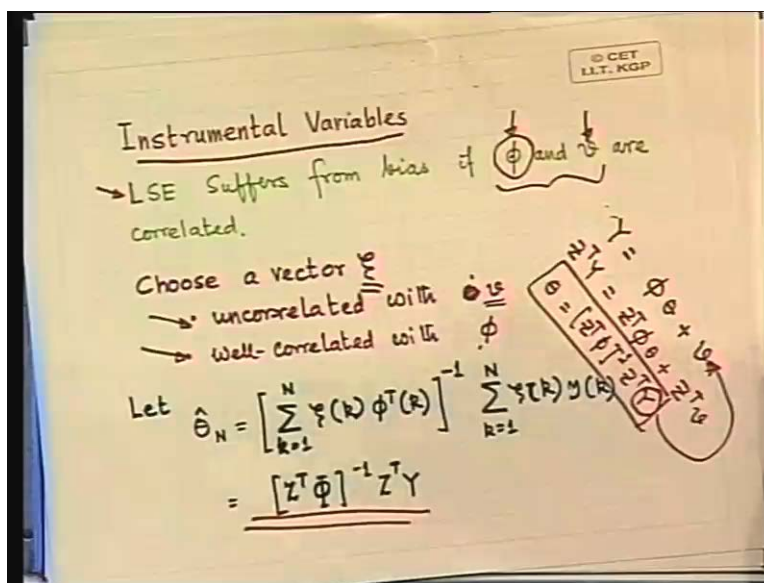 © CET
I.I.T. KGP
Instrumental Variables
→ LSE Suffers from bias if ϕ and v are
correlated.
Choose a vector ξ
→ • uncorrelated with v
→ • well-correlated with ϕ
Let θ̂_N = [∑_{k=1}^{N} ξ(k) ϕ^T(k)]^{-1} ∑_{k=1}^{N} ξ(k) y(k)
= [Z^T Φ]^{-1} Z^T Y
Y = ϕ θ + v
Z^T Y = Z^T ϕ θ + Z^T v
θ = [Z^T ϕ]^{-1} Z^T Y